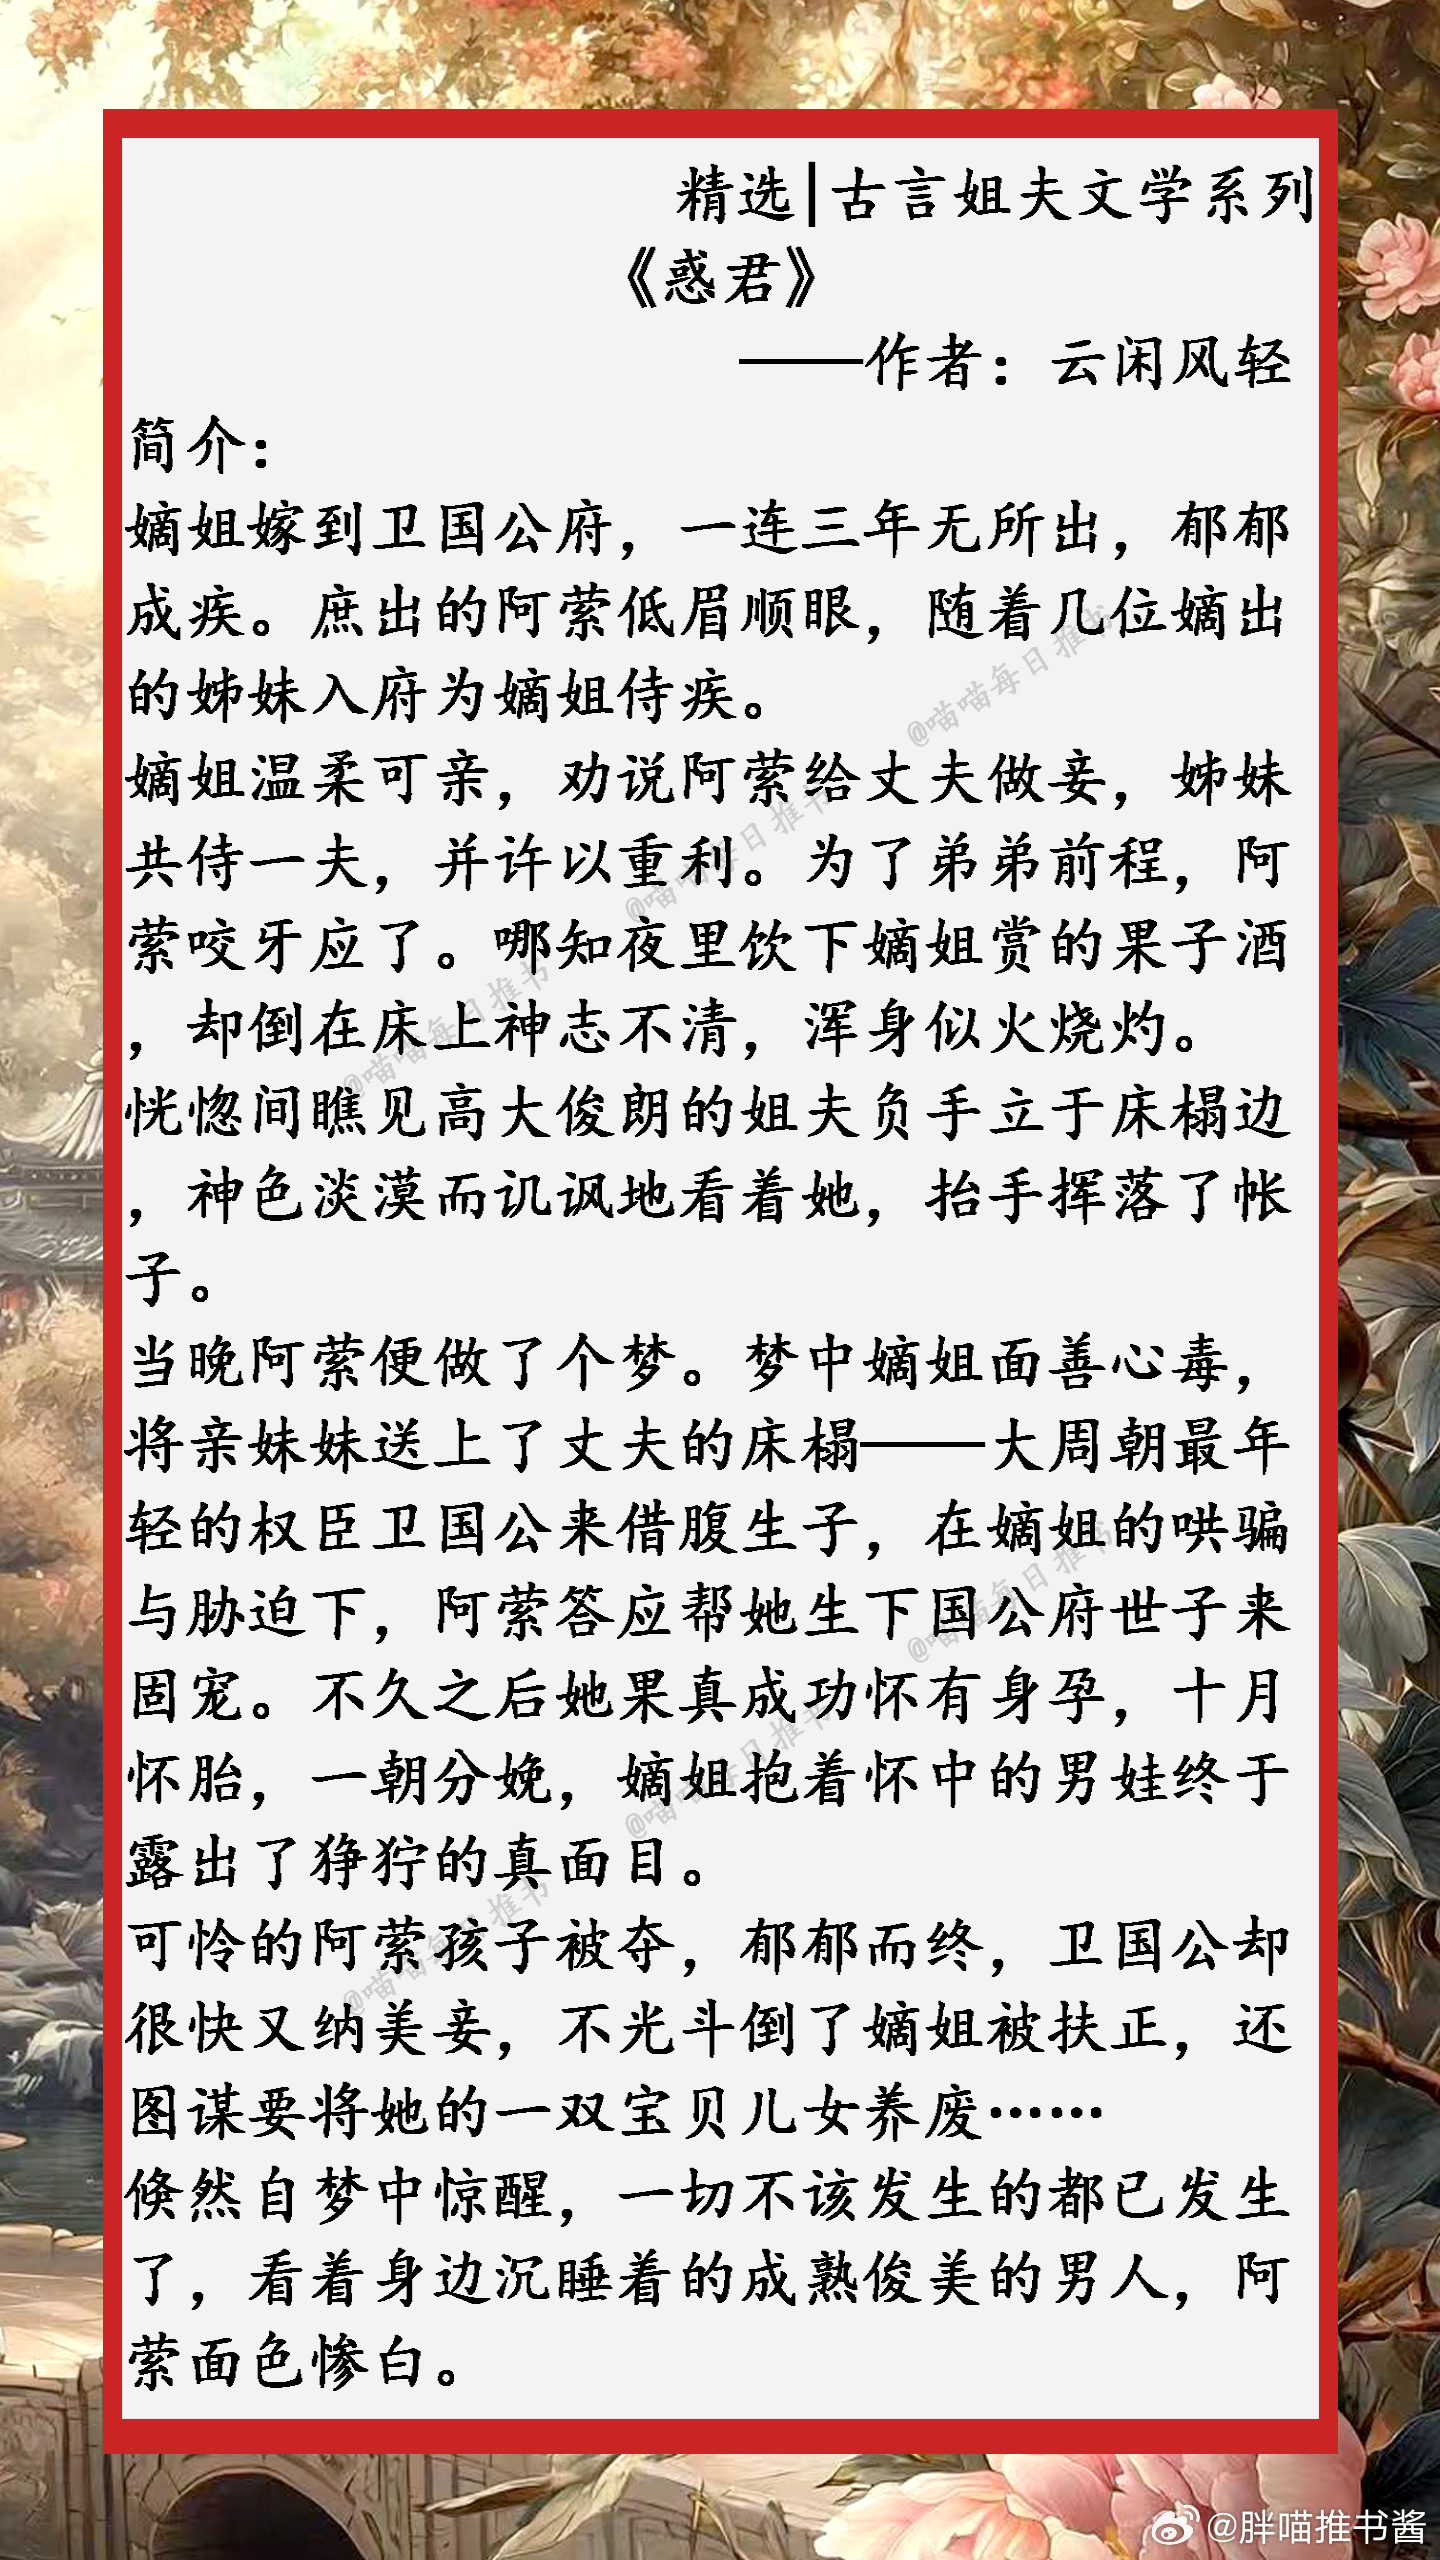 精选|古言姐夫文学系列
《惑君》
——作者：云闲风轻
简介：
嫡姐嫁到卫国公府，一连三年无所出，郁郁
成疾。庶出的阿萦低眉顺眼，随着几位嫡出
的姊妹入府为嫡姐侍疾。
嫡姐温柔可亲，劝说阿萦给丈夫做妾，姊妹
共侍一夫，并许以重利。为了弟弟前程，阿
萦咬牙应了。哪知夜里饮下嫡姐赏的果子酒
，却倒在床上神志不清，浑身似火烧灼。
恍惚间瞧见高大俊朗的姐夫负手立于床榻边
，神色淡漠而讥讽地看着她，抬手挥落了帐
子。
当晚阿萦便做了个梦。梦中嫡姐面善心毒，
将亲妹妹送上了丈夫的床榻——大周朝最年
轻的权臣卫国公来借腹生子，在嫡姐的哄骗
与胁迫下，阿萦答应帮她生下国公府世子来
固宠。不久之后她果真成功怀有身孕，十月
怀胎，一朝分娩，嫡姐抱着怀中的男娃终于
露出了狰狞的真面目。
可怜的阿萦孩子被夺，郁郁而终，卫国公却
很快又纳美妾，不光斗倒了嫡姐被扶正，还
图谋要将她的一双宝贝儿女养废……
倏然自梦中惊醒，一切不该发生的都已发生
了，看着身边沉睡着的成熟俊美的男人，阿
萦面色惨白。
@喵喵每日推书
@喵喵每日推书
@喵喵每日推书
@喵喵每日推书
@喵喵每日推书
@喵喵每日推书
@胖喵推书酱